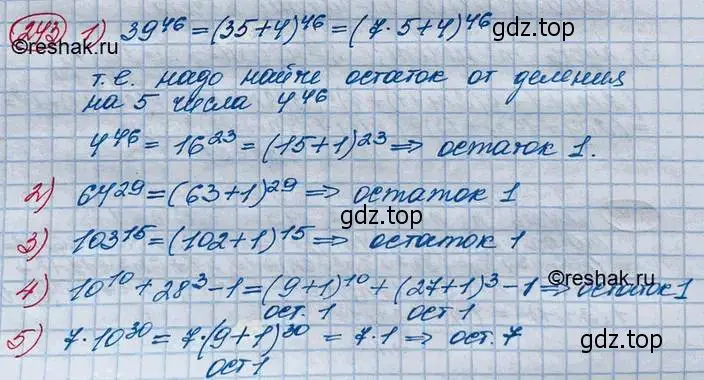 243 1) 39^46 = (35+4)^46 = (7·5+4)^46
gdz.top
©reshak.ru
т.е. надо найти остаток от деления
на 5 числа 4^46
4^46 = 16^23 = (15+1)^23 ⇒ остаток 1.
2) 64^29 = (63+1)^29 ⇒ остаток 1
gdz.top
3) 103^15 = (102+1)^15 ⇒ остаток 1
©reshak.ru
4) 10^10 + 28^3 - 1 = (9+1)^10 + (27+1)^3 - 1 ⇒ остаток 1
ост. 1 ост 1
5) 7·10^30 = 7·(9+1)^30 = 7·1 ⇒ ост. 7
ост 1
gdz.top